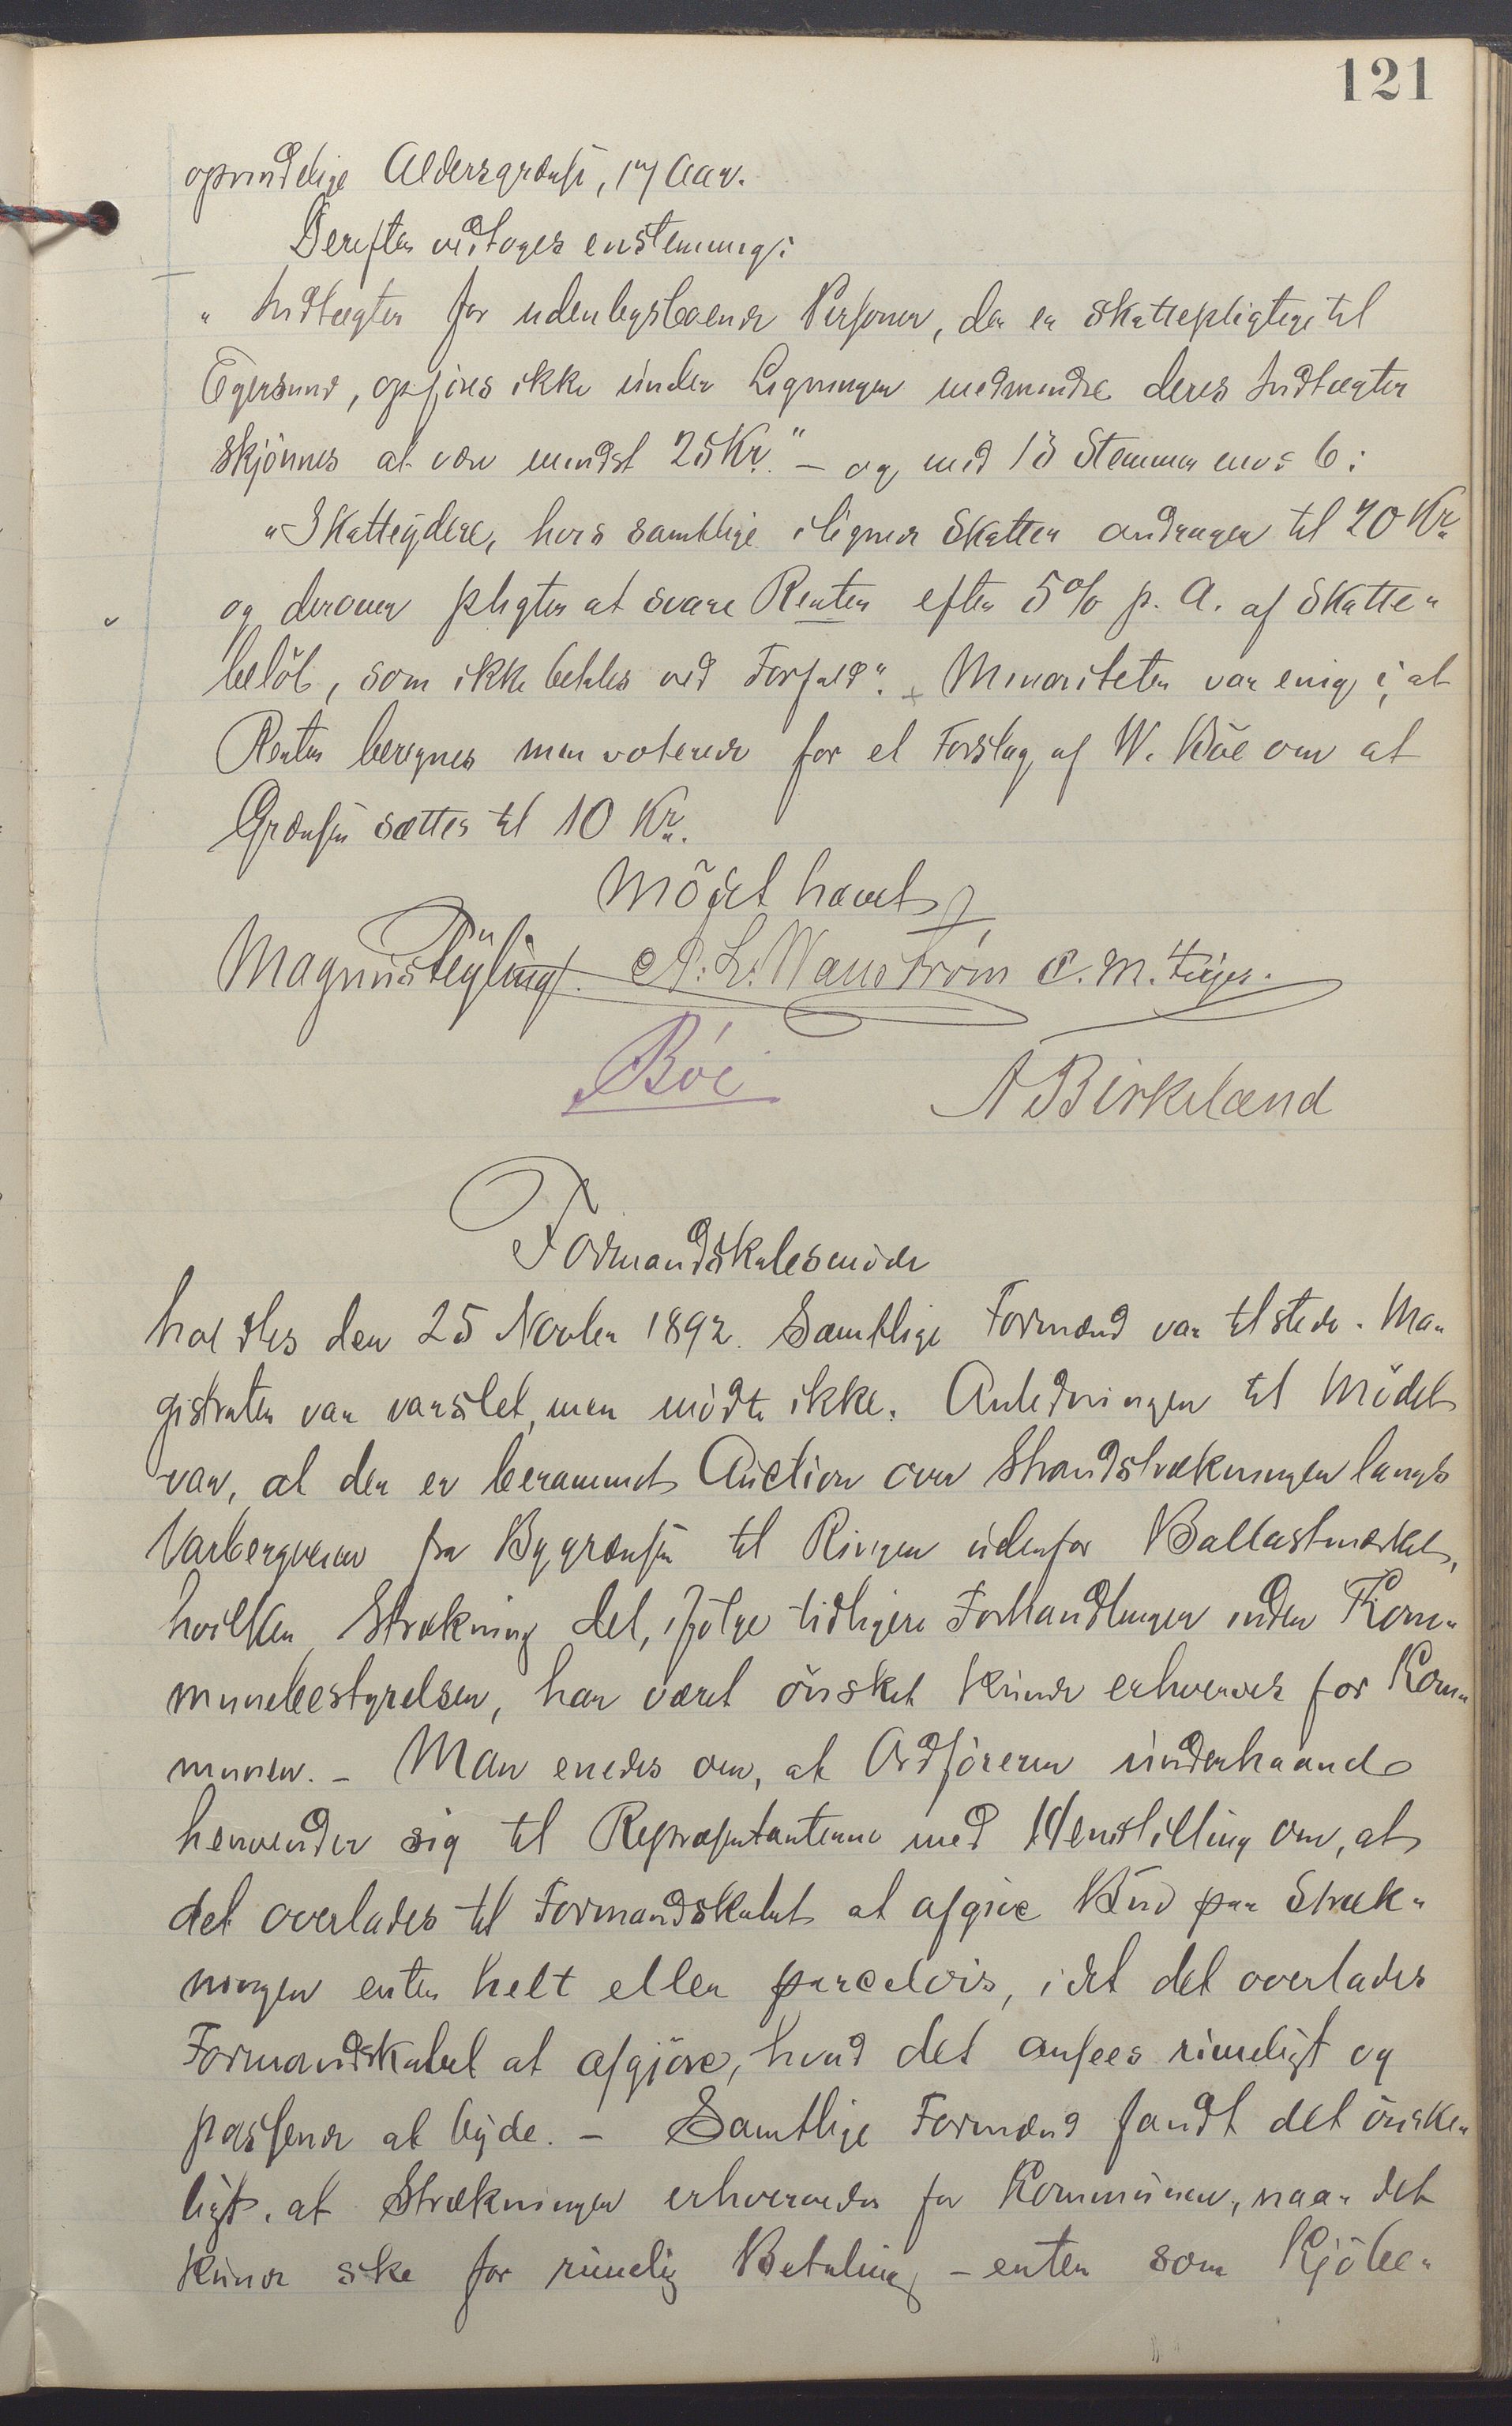 121
oprindelige Aldersgrændse, 17 Aar.
Derefter vedtoges enstemmig:
"Indtægter for udenbysboende Personer, der er skattepligtige til
Egersund, opføres ikke under Ligningen medmindre deres Indtægter
skjönnes at være mindst 25 Kr." – og med 13 Stemmer mod 6:
"Skatteydere, hvis samtlige ilignede Skatter andrager til 20 Kr.
og derover pligter at svare Renter efter 5% p. A. af Skatte-
belöb, som ikke betales ved Forfald". Minoriteten var enig i, at
Renten beregnes men voterede for et Forslag af W. Böe om at
Grændsen sættes til 10 Kr.
Mödet hævet
Magnus Feyling. A. L. Wanström C. M. Puntervold
Böe
A Birkeland
Formandskabsmöde
holdtes den 25 Novbr 1892. Samtlige Formænd var tilstede. Ma-
gistraten var varslet, men mödte ikke. Anledningen til Mödet
var, at der er berammet Auction over Strandstrækningen langs
Varbergveien fra Bygrændsen til Ringen udenfor Ballastmærket,
hvilken Strækning det, ifölge tidligere Forhandlinger inden Kom-
munebestyrelsen, har været önsket kunde erhverves for Kom-
munen. – Man enedes om, at Ordföreren underhaanden
henvender sig til Repræsentanterne med Henstilling om, at
det overlades til Formandskabet at afgive Bud paa Stræk-
ningen enten helt eller parcelvis, idet det overlades
Formandskabet at afgjöre, hvad det ansees rimeligt og
passende at byde. – Samtlige Formænd fandt det önske-
ligt, at Strækningen erhvervedes for Kommunen, naar det
kunde ske for rimelig Betaling – enten som Kjöbe-